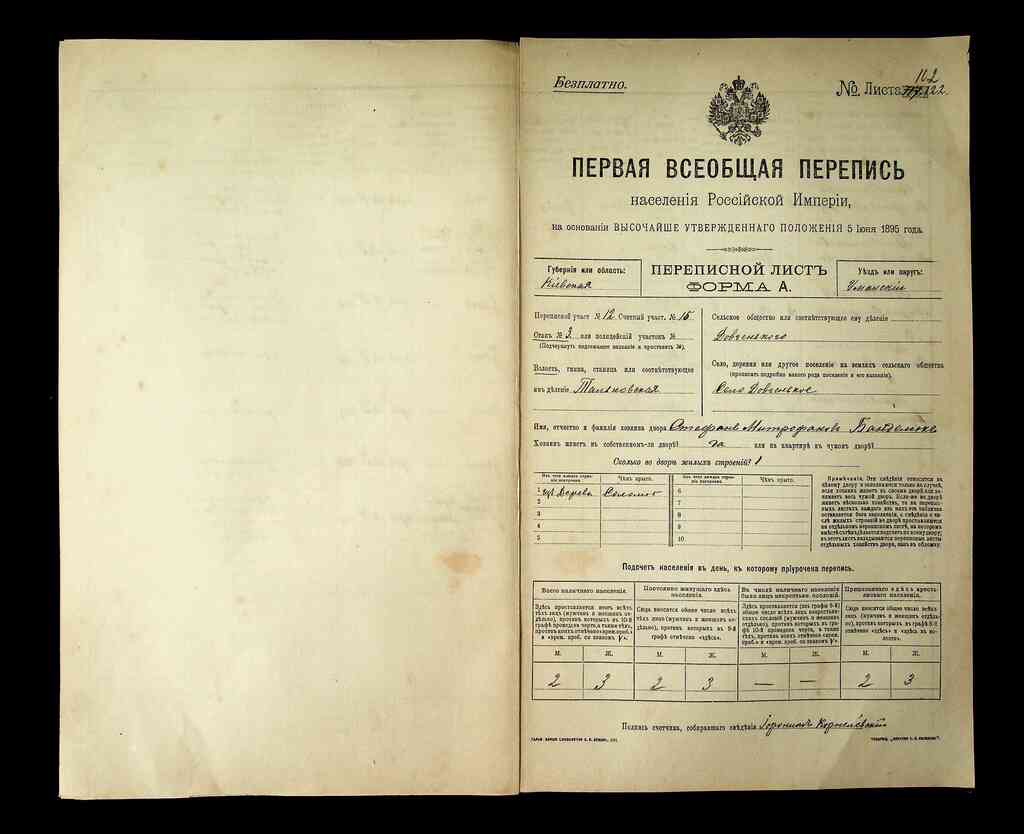 Безплатно.
№ Листа 122.
162
ПЕРВАЯ ВСЕОБЩАЯ ПЕРЕПИСЬ
населенія Россійской Имперіи,
на основаніи ВЫСОЧАЙШЕ УТВЕРЖДЕННАГО ПОЛОЖЕНІЯ 5 Іюня 1895 года.
Губернія или область:
Кіевская
ПЕРЕПИСНОЙ ЛИСТЪ
ФОРМА А.
Уѣздъ или округъ:
Уманскій
Переписной участ. № 12 Счетный участ. № 15
Станъ № 3 или полицейскій участокъ №
(Подчеркнуть подлежащее названіе и проставить №).
Волость, гмина, станица или соотвѣтствующее
имъ дѣленіе Тальновская
Сельское общество или соотвѣтствующее ему дѣленіе
Довгенького
Село, деревня или другое поселеніе на земляхъ сельскаго общества
(прописать подробно какого рода поселеніе и его названіе).
Село Довгенькое
Имя, отчество и фамилія хозяина двора Стефанъ Митрофановъ
Хозяинъ живетъ въ собственномъ-ли дворѣ? да или на квартирѣ въ чужомъ дворѣ?
Сколько во дворѣ жилыхъ строеній? 1
Изъ чего каждое строеніе построено.
Чѣмъ крыто.
Изъ чего каждое строеніе построено.
Чѣмъ крыто.
1 изъ дерева Соломою 6
2 7
3 8
4 9
5 10
Примѣчаніе. Эти свѣдѣнія относятся къ
цѣлому двору и заполняются только въ случаѣ,
если хозяинъ живетъ въ своемъ дворѣ или занимаетъ
весь чужой дворъ. Если-же во дворѣ
живетъ нѣсколько хозяйствъ, то на переписныхъ
листахъ каждаго изъ нихъ эта табличка
оставляется безъ заполненія, а свѣдѣнія о числѣ
жилыхъ строеній во дворѣ проставляются
на отдѣльномъ переписномъ листѣ, на которомъ
вмѣстѣ съ тѣмъ дѣлается подсчетъ по всему двору;
въ этотъ листъ вкладываются переписные листы
отдѣльныхъ хозяйствъ двора, какъ въ обложку.
Подсчетъ населенія въ день, къ которому пріурочена перепись.
Всего наличнаго населенія.
Постоянно живущаго здѣсь населенія.
Въ числѣ наличнаго населенія было лицъ некрестьянск. сословій.
Приписаннаго здѣсь крестьянскаго населенія.
Здѣсь проставляется итогъ всѣхъ
тѣхъ лицъ (мужчинъ и женщинъ отдѣльно),
противъ которыхъ въ 10-й
графѣ проведена черта, а также тѣхъ,
противъ коихъ отмѣчено «врем. проб.»
и «врем. проб. со знакомъ V».
Сюда вносится общее число всѣхъ
тѣхъ лицъ (мужчинъ и женщинъ отдѣльно),
противъ которыхъ въ 9-й
графѣ отмѣчено «здѣсь».
Здѣсь проставляется (изъ графы 9-й)
общее число всѣхъ лицъ некрестьянскихъ
сословій (мужчинъ и женщинъ
отдѣльно), противъ которыхъ въ графѣ
10-й проведена черта, а также
тѣхъ, противъ коихъ отмѣчено «врем.
проб.» и «врем. проб. со знакомъ V».
Сюда вносится общее число всѣхъ
тѣхъ лицъ (мужчинъ и женщинъ отдѣльно),
противъ которыхъ въ графѣ 8-й
отмѣчено «здѣсь» и «здѣсь въ волости».
М. Ж. М. Ж. М. Ж. М. Ж.
2 3 2 3 — — 2 3
Подпись счетчика, собиравшаго свѣдѣнія